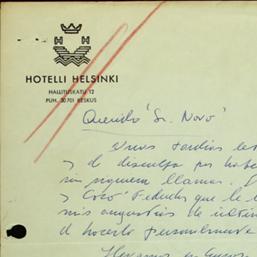 HOTELLI HELSINKI
HALLITUSKATU 12
PUH. 30701 KESKUS
Querido Sr. Novo
Unas tardías le
y de disculpa por habe
sin siquiera llamar.
y "Cocó" Fedida que le
mis angustias de últim
de hacerlo personalmen
Llevamos